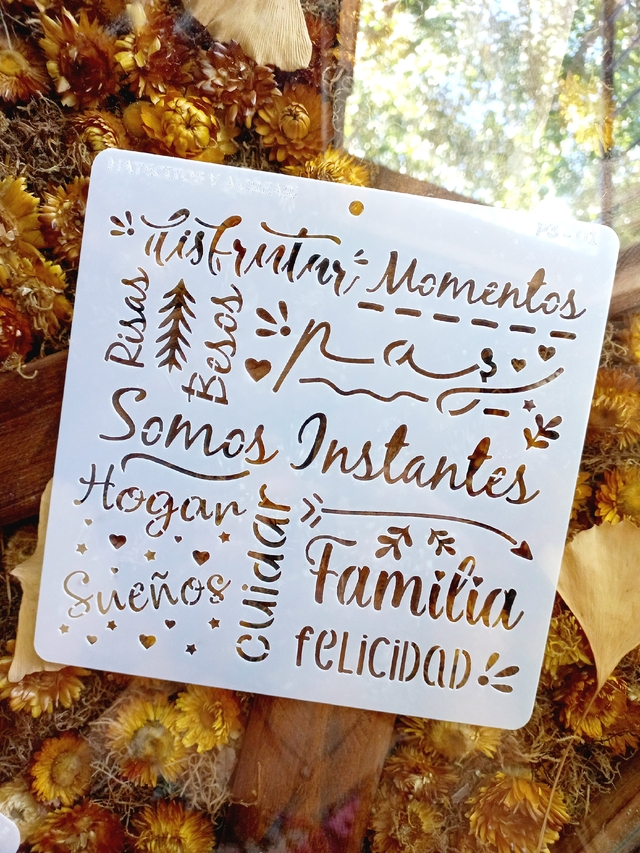 disfrutar Momentos
Risas
Besos
Paz
Somos Instantes
Hogar
cuidar
Familia
Sueños
feLiciDAD